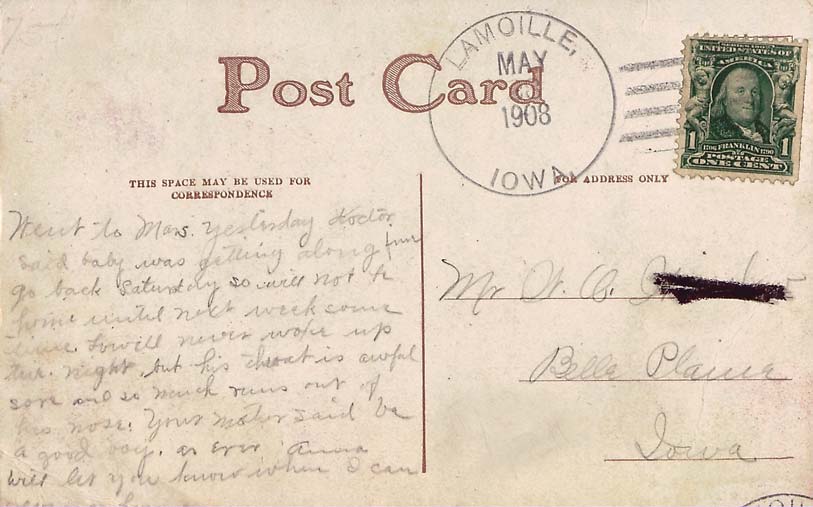 LAMOILLE,
MAY
1908
IOWA.
Post Card
SERIES 1902
UNITED STATES OF
AMERICA
1706 FRANKLIN 1790
1 1
POSTAGE
ONE CENT
THIS SPACE MAY BE USED FOR
CORRESPONDENCE
FOR ADDRESS ONLY
Went to Mars. yesterday Doctor
said baby was getting along fine
go back Saturday so will not be
home until next week some
time. Lowell never woke up
last night, but his throat is awful
sore and so much runs out of
his nose. Your mother said be
a good boy. as ever Anna
will let you know when I can
Mr W. C.
Belle Plaine
Iowa